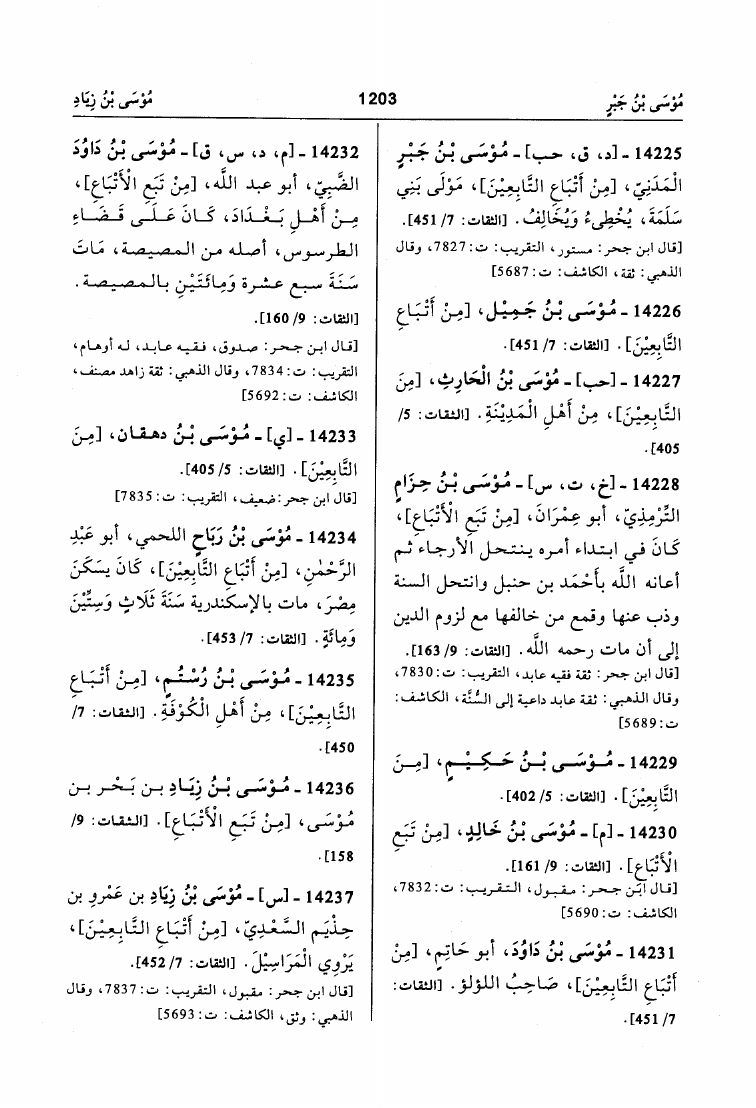 مُوْسَى بْنُ جَبْرٍ
1203
مُوْسَى بْنُ زِيَادٍ
14225 - [د، ق، حب] - مُوْسَى بْنُ جَبْرٍ
الْمَدَنِيّ، [مِنْ أَتْبَاعِ التَّابِعِيْنَ]، مَوْلَى بَنِي
سَلَمَة، يُخْطِىءُ وَيُخَالِفُ. [الثقات: 7/ 451].
[قال ابن حجر: مستور، التقريب: ت: 7827، وقال
الذهبي: ثقة، الكاشف: ت: 5687]
14226 - مُوْسَى بْنُ جَمِيْل، [مِنْ أَتْبَاعِ
التَّابِعِيْنَ]. [الثقات: 7/ 451].
14227 - [حب] - مُوْسَى بْنُ الْحَارِث، [مِنَ
التَّابِعِيْنَ]، مِنْ أَهْلِ الْمَدِيْنَةِ. [الثقات: 5/
405].
14228 - [خ، ت، س] - مُوْسَى بْنُ حِزَامٍ
التِّرْمِذِيّ، أبو عِمْرَانَ، [مِنْ تَبَعِ الأَتْبَاعِ]،
كَانَ في ابتداء أمره ينتحل الأرجاء ثم
أعانه اللَّه بأَحْمَد بن حنبل وانتحل السنة
وذب عنها وقمع من خالفها مع لزوم الدين
إلى أن مات رحمه اللَّه. [الثقات: 9/ 163].
[قال ابن حجر: ثقة فقيه عابد، التقريب: ت: 7830،
وقال الذهبي: ثقة عابد داعية إلى السُّنَّة، الكاشف:
ت: 5689]
14229 - مُوْسَى بْنُ حَكِيْمٍ، [مِنَ
التَّابِعِيْنَ]. [الثقات: 5/ 402].
14230 - [م] - مُوْسَى بْنُ خَالِدٍ، [مِنْ تَبَعِ
الأَتْبَاعِ]. [الثقات: 9/ 161].
[قال ابن حجر: مقبول، التقريب: ت: 7832،
الكاشف: ت: 5690]
14231 - مُوْسَى بْنُ دَاوُدَ، أبو حَاتِمٍ، [مِنْ
أَتْبَاعِ التَّابِعِيْنَ]، صَاحِبُ اللؤلؤ. [الثقات:
7/ 451].
14232 - [م، د، س، ق] - مُوْسَى بْنُ دَاوُدَ
الضَّبِيّ، أبو عبد اللَّه، [مِنْ تَبَعِ الأَتْبَاعِ]،
مِنْ أَهْلِ بَغْدَادَ، كَانَ عَلَى قَضَاء
الطرسوس، أصله من المصيصة، مَاتَ
سَنَةَ سبع عشرة وَمِائَتَيْنِ بالمصيصة.
[الثقات: 9/ 160].
[قال ابن حجر: صدوق، فقيه عابد، له أوهام،
التقريب: ت: 7834، وقال الذهبي: ثقة زاهد مصنف،
الكاشف: ت: 5692]
14233 - [ي] - مُوْسَى بْنُ دهقان، [مِنَ
التَّابِعِيْنَ]. [الثقات: 5/ 405].
[قال ابن حجر: ضعيف، التقريب: ت: 7835]
14234 - مُوْسَى بْنُ رَبَاحٍ اللحمي، أبو عَبْدِ
الرَّحْمٰنِ، [مِنْ أَتْبَاعِ التَّابِعِيْنَ]، كَانَ يسكن
مِصْرَ، مات بالإسكندرية سَنَةَ ثَلَاثٍ وَسِتِّيْنَ
وَمِائَةٍ. [الثقات: 7/ 453].
14235 - مُوْسَى بْنُ رُسْتُمٍ، [مِنْ أَتْبَاعِ
التَّابِعِيْنَ]، مِنْ أَهْلِ الْكُوْفَةِ. [الثقات: 7/
450].
14236 - مُوْسَى بْنُ زِيَادِ بن بَحْر بن
مُوْسَى، [مِنْ تَبَعِ الأَتْبَاعِ]. [الثقات: 9/
158].
14237 - [س] - مُوْسَى بْنُ زِيَادِ بن عَمْرِو بن
حِذْيَم السَّعْدِيّ، [مِنْ أَتْبَاعِ التَّابِعِيْنَ]،
يَرْوِي الْمَرَاسِيْلَ. [الثقات: 7/ 452].
[قال ابن حجر: مقبول، التقريب: ت: 7837، وقال
الذهبي: وثق، الكاشف: ت: 5693]